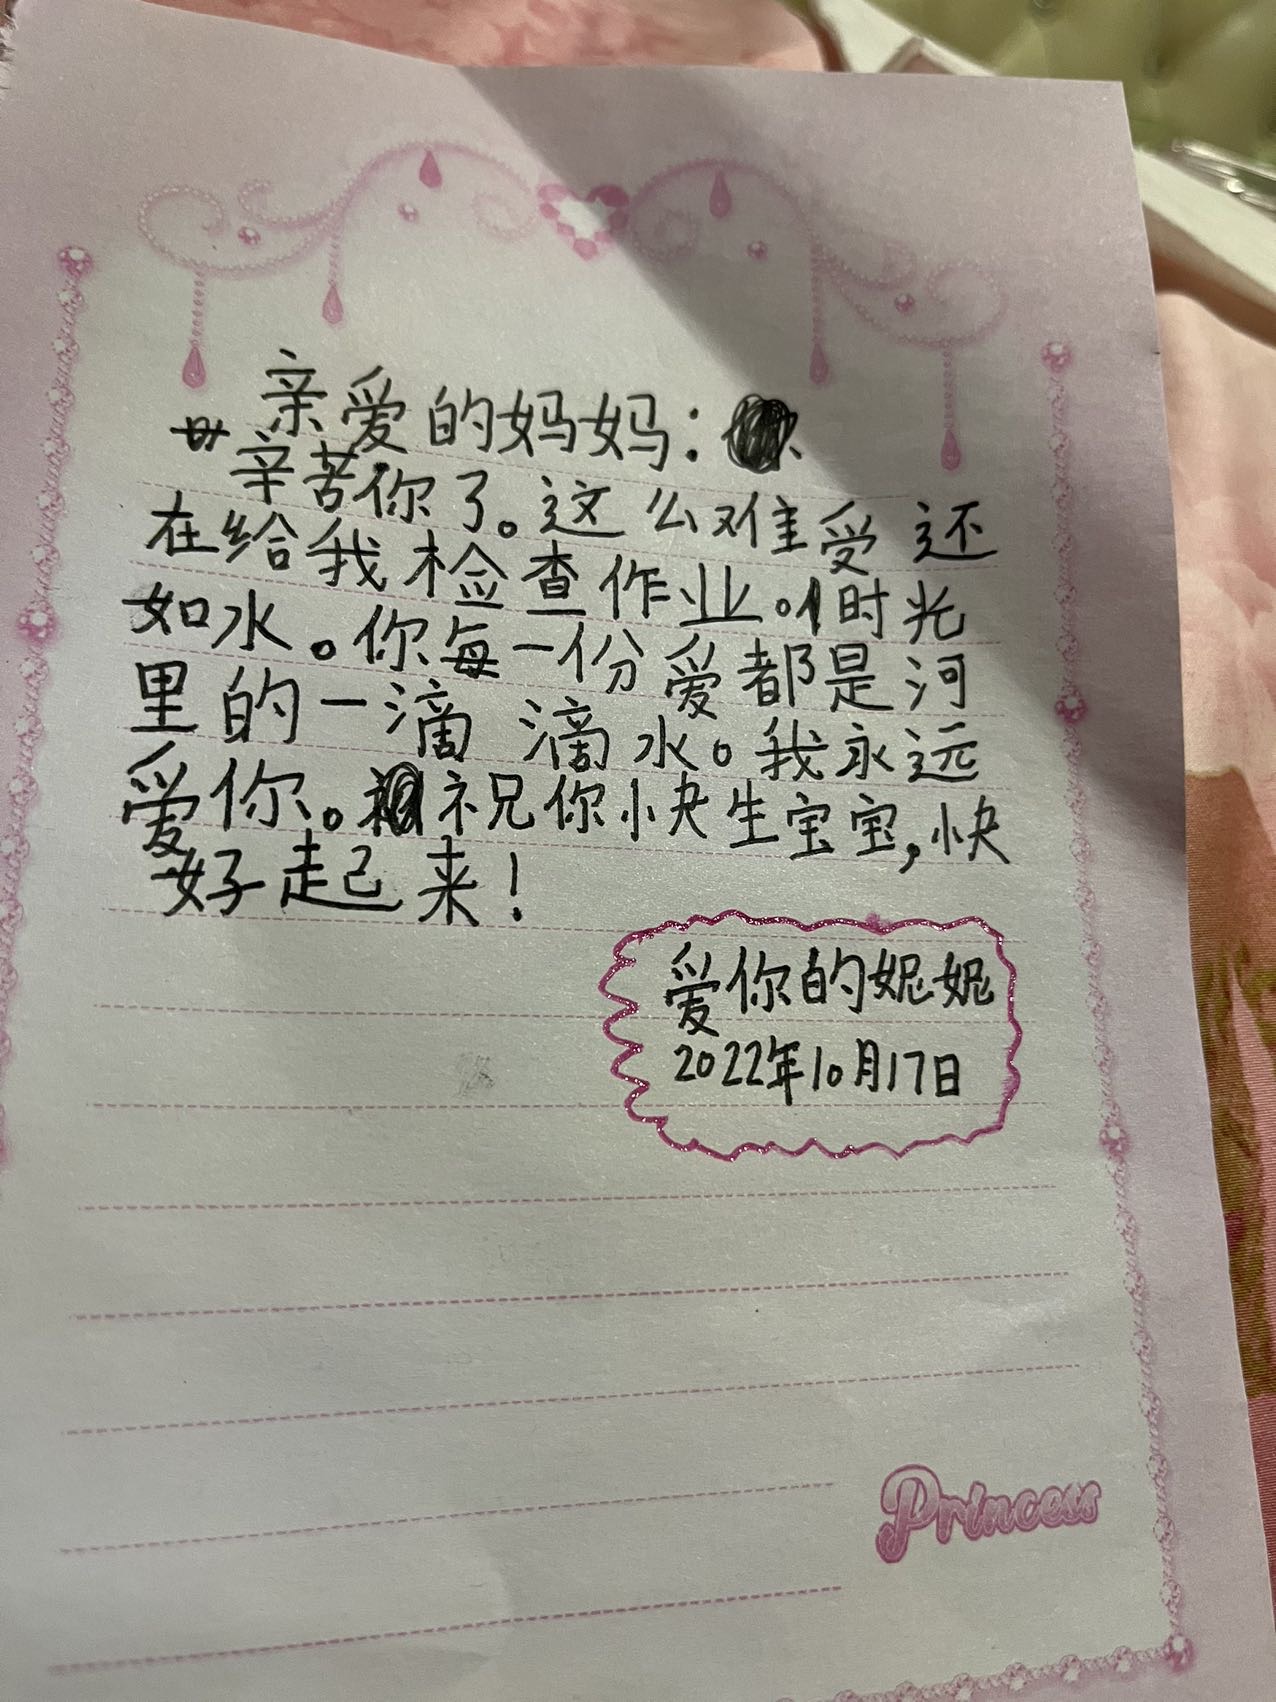 亲爱的妈妈：
辛苦你了。这么难受还
在给我检查作业。时光
如水。你每一份爱都是河
里的一滴滴水。我永远
爱你。祝你快生宝宝,快
好起来!
爱你的妮妮
2022年10月17日
Princess